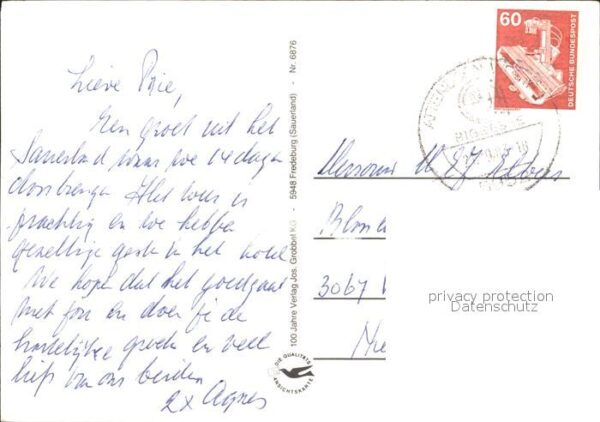 Lieve Rie,
Een groet uit het
Sauerland waar we 14 dagen
doorbrengen. Het weer is
prachtig en we hebben
gezellige gasten in het hotel
We hopen dat het goed gaat
met jou en doen je de
hartelijke groeten en veel
liefs van ons beiden
2x Agnes
100 Jahre Verlag Jos. Grobbel KG - 5948 Fredeburg (Sauerland) - Nr. 6876
DIE QUALITÄTS
ANSICHTSKARTE
60
DEUTSCHE BUNDESPOST
Mevrouw
3067
privacy protection
Datenschutz